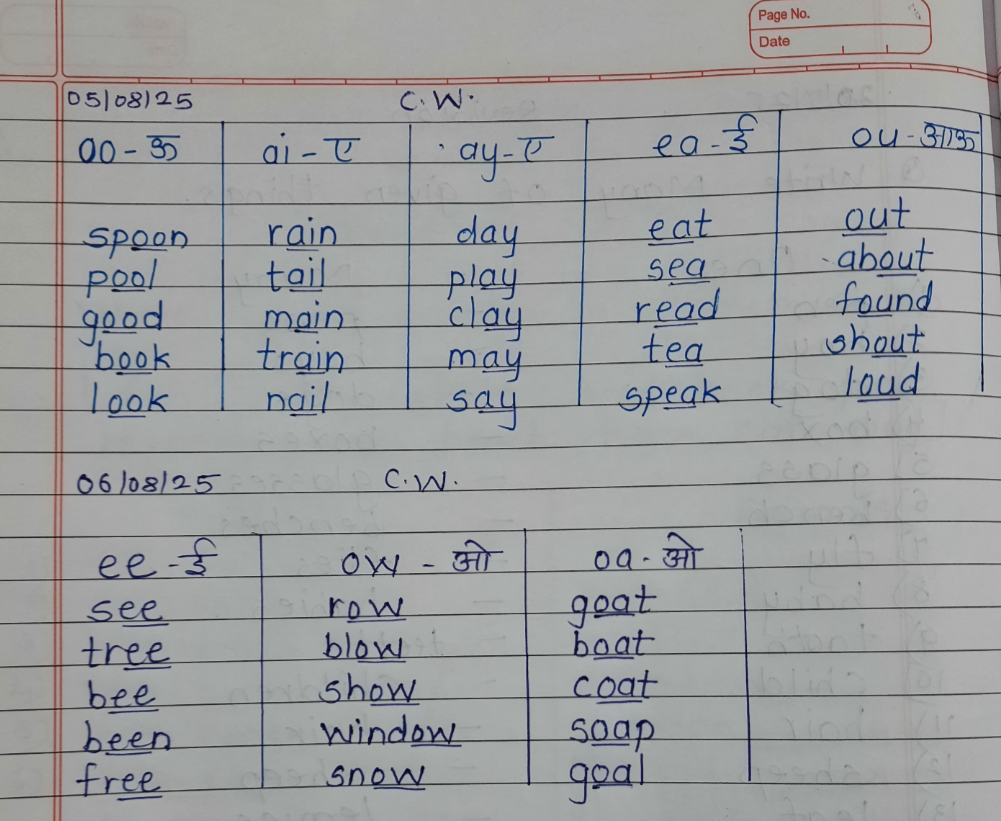 Page No.
Date
05/08/25 C.W.
oo - ऊ ai - ए ay - ए ea - ई ou - आऊ
spoon rain day eat out
pool tail play sea about
good main clay read found
book train may tea shout
look nail say speak loud
06/08/25 C.W.
ee - ई ow - ओ oa - ओ
see row goat
tree blow boat
bee show coat
been window soap
free snow goal